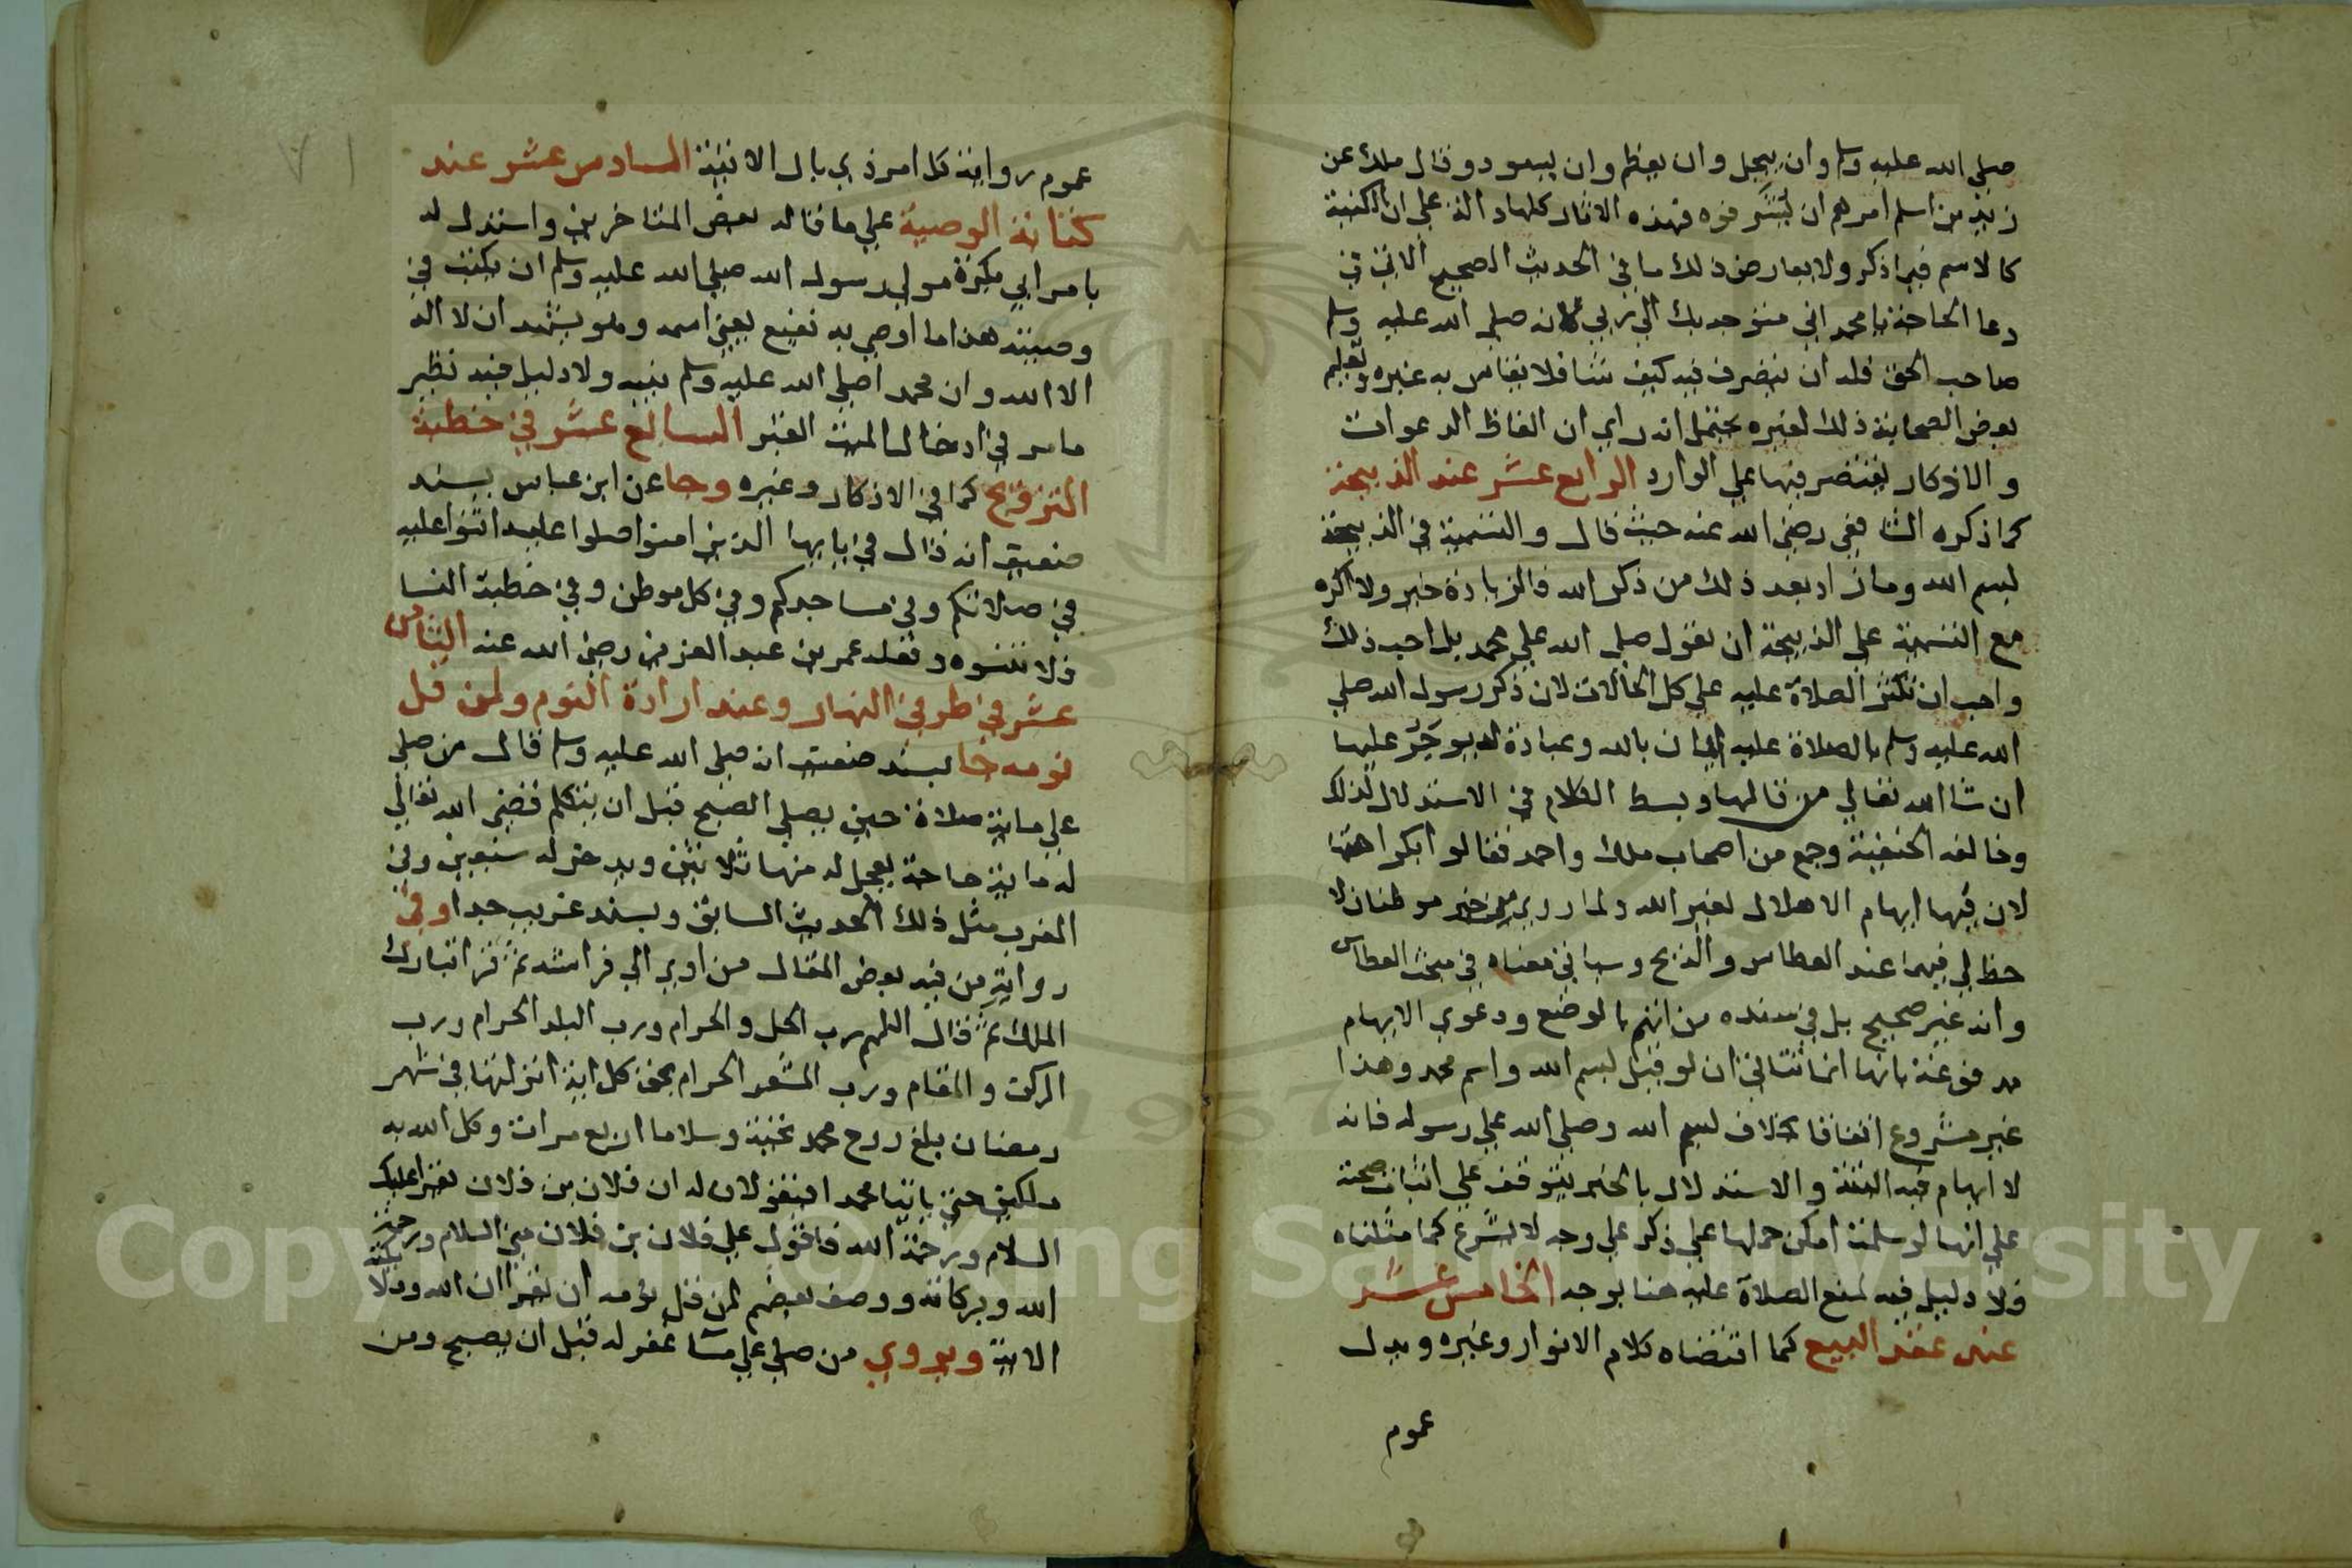 صلي الله عليه وسلم وان يبجل وان يعظم وان يسود وقال ملك عن
زيد بن اسلم امرهم ان يشرفوه فهذه الاثار كلها دالة علي ان الكنية
كالاسم فيما ذكر ولا يعارض ذلك ما في الحديث الصحيح الاتي في
دعا الحاجة يا محمد اني متوجه بك الي ربي لانه صلي الله عليه وسلم
صاحب الحق فله ان يتصرف فيه كيف شا فلا يقاس به غيره وتعليم
بعض الصحابة ذلك لغيره يحتمل انه راي ان الفاظ الدعوات
والاذكار يقتصر فيها علي الوارد الرابع عشر عند الذبيحة
كما ذكره الشافعي رضي الله عنه حيث قال والتسمية في الذبيحة
بسم الله وما زاد بعد ذلك من ذكر الله فالزيادة خير ولا اكره
مع التسمية علي الذبيحة ان يقول صلي الله علي محمد بل احب ذلك
واحب ان تكثر الصلاة عليه علي كل الحالات لان ذكر رسول الله صلي
الله عليه وسلم بالصلاة عليه ايمان بالله وعبادة له يوجر عليها
ان شا الله تعالي من قالها وبسط الكلام في الاستدلال لذلك
وخالفه الحنفية وجمع من اصحاب ملك واحمد فقالوا بكراهتها
لان فيها ايهام الاهلال لغير الله ولما روي من خبر موطنان لا
حظ لي فيهما عند العطاس والذبح وسياتي معناه في مبحث العطاس
وانه غير صحيح بل في سنده من اتهم بالوضع ودعوي الايهام
مدفوعة بانها انما تتاتي ان لو قيل بسم الله واسم محمد وهذا
غير مشروع اتفاقا بخلاف بسم الله وصلي الله علي رسوله فانه
لا ايهام فيه البتة والاستدلال بالخبر يتوقف علي اثبات صحته
علي انها لو سلمت امكن حملها علي ذكر علي وجه لا يشرع كما مثلناه
فلا دليل فيه لمنع الصلاة عليه هنا بوجه الخامس عشر
عند عقد البيع كما اقتضاه كلام الانوار وغيره ويدل
عموم
عموم رواية كل امر ذي بال الاتية السادس عشر عند
كتابة الوصية علي ما قاله بعض المتاخرين واستدل له
بامر ابي بكرة مولي رسول الله صلي الله عليه وسلم ان يكتب في
وصيته هذا ما اوصي به نفيع يعني اسمه وهو يشهد ان لا اله
الا الله وان محمدا صلي الله عليه وسلم نبيه ولا دليل فيه نظير
ما مر في ادخال الميت القبر السابع عشر في خطبة
التزويج كما في الاذكار وغيره وجا عن ابن عباس بسند
ضعيف انه قال في يا يها الذين امنوا صلوا عليه اثنوا عليه
في صلاتكم وفي مساجدكم وفي كل موطن وفي خطبة النسا
فلا تنسوه ونقله عمر بن عبد العزيز رضي الله عنه الثامن
عشر في طرفي النهار وعند ارادة النوم ولمن قل
نومه جا بسند ضعيف انه صلي الله عليه وسلم قال من صلي
علي ماية صلاة حين يصلي الصبح قبل ان يتكلم قضي الله تعالي
له ماية حاجة يعجل له منها ثلاثين ويدخر له سبعين وفي
المغرب مثل ذلك الحديث السابق وبسند غريب جدا وفي
رواية من فيه بعض المقال من اوي الي فراشه ثم قرا تبارك
الملك ثم قال اللهم رب الحل والحرام ورب البلد الحرام ورب
الركن والمقام ورب المشعر الحرام بحق كل اية انزلتها في شهر
رمضان بلغ روح محمد تحية وسلاما اربع مرات وكل الله به
ملكين حتي ياتيا محمدا فيقولان له ان فلان بن فلان يقرا عليك
السلام ورحمة الله فاقول علي فلان بن فلان مني السلام ورحمة
الله وبركاته ووصف بعضهم لمن قل نومه ان يقرا ان الله وملائكته
الاية ويروي من صلي علي مسا غفر له قبل ان يصبح ومن
Copyright © King Saud University
1957